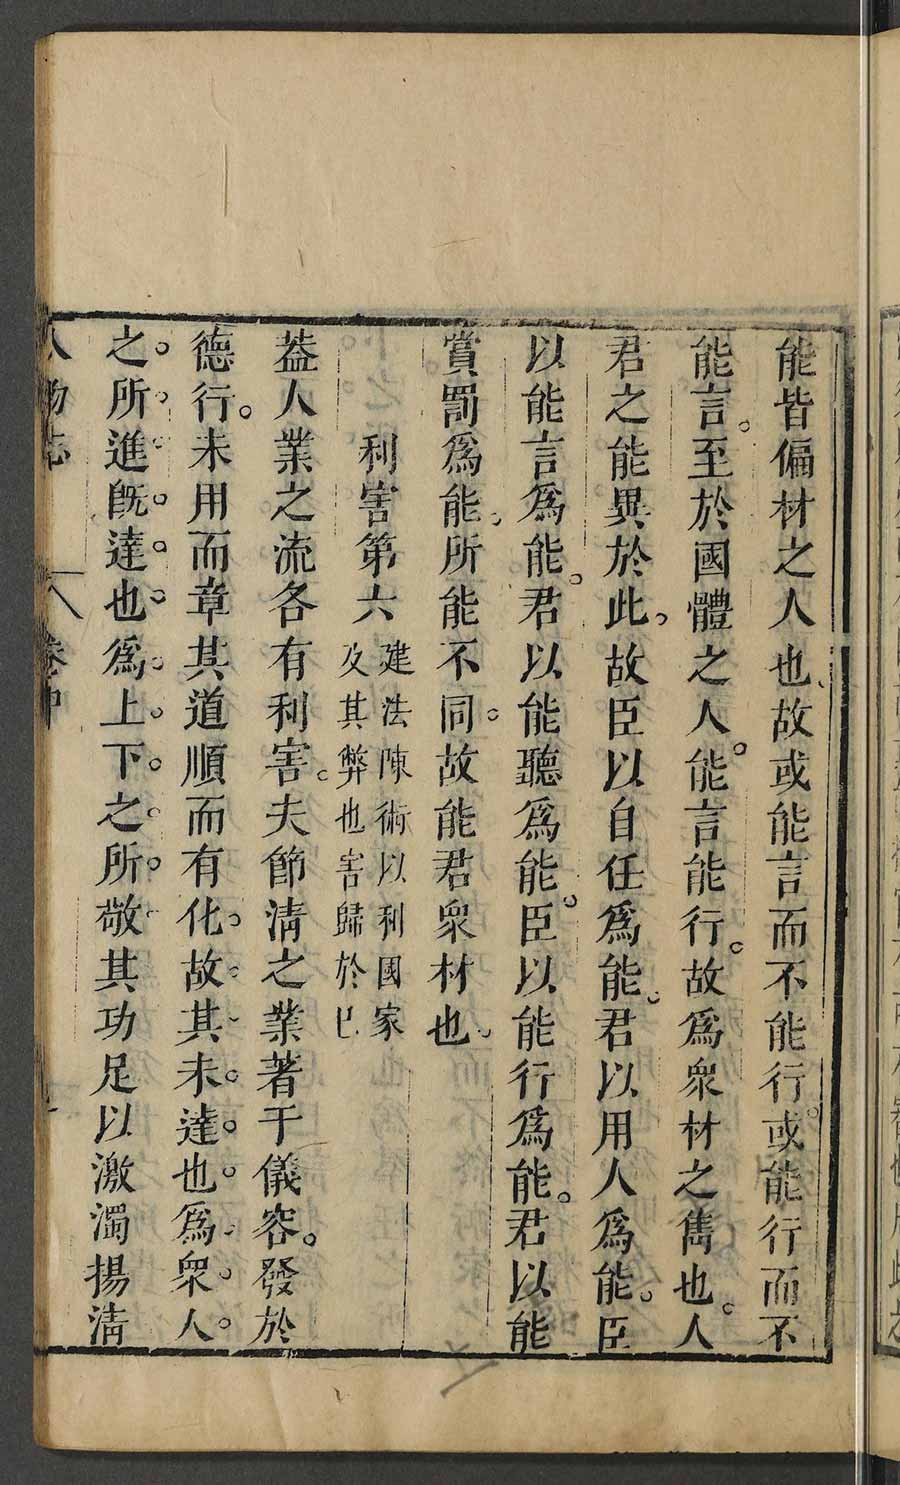 能皆偏材之人也、故或能言而不能行。或能行而不
能言。至於國體之人。能言能行。故爲衆材之雋也。人
君之能異於此。故臣以自任爲能。君以用人爲能。臣
以能言爲能。君以能聽爲能。臣以能行爲能。君以能
賞罰爲能。所能不同。故能君衆材也。
利害第六
建法陳術以利國家
及其弊也害歸於已
葢人業之流各有利害。夫節淸之業著于儀容。發於
德行。未用而章其道順而有化。故其未達也爲衆人
之所進旣達也爲上下之所敬其功足以激濁揚淸
人物志
卷中